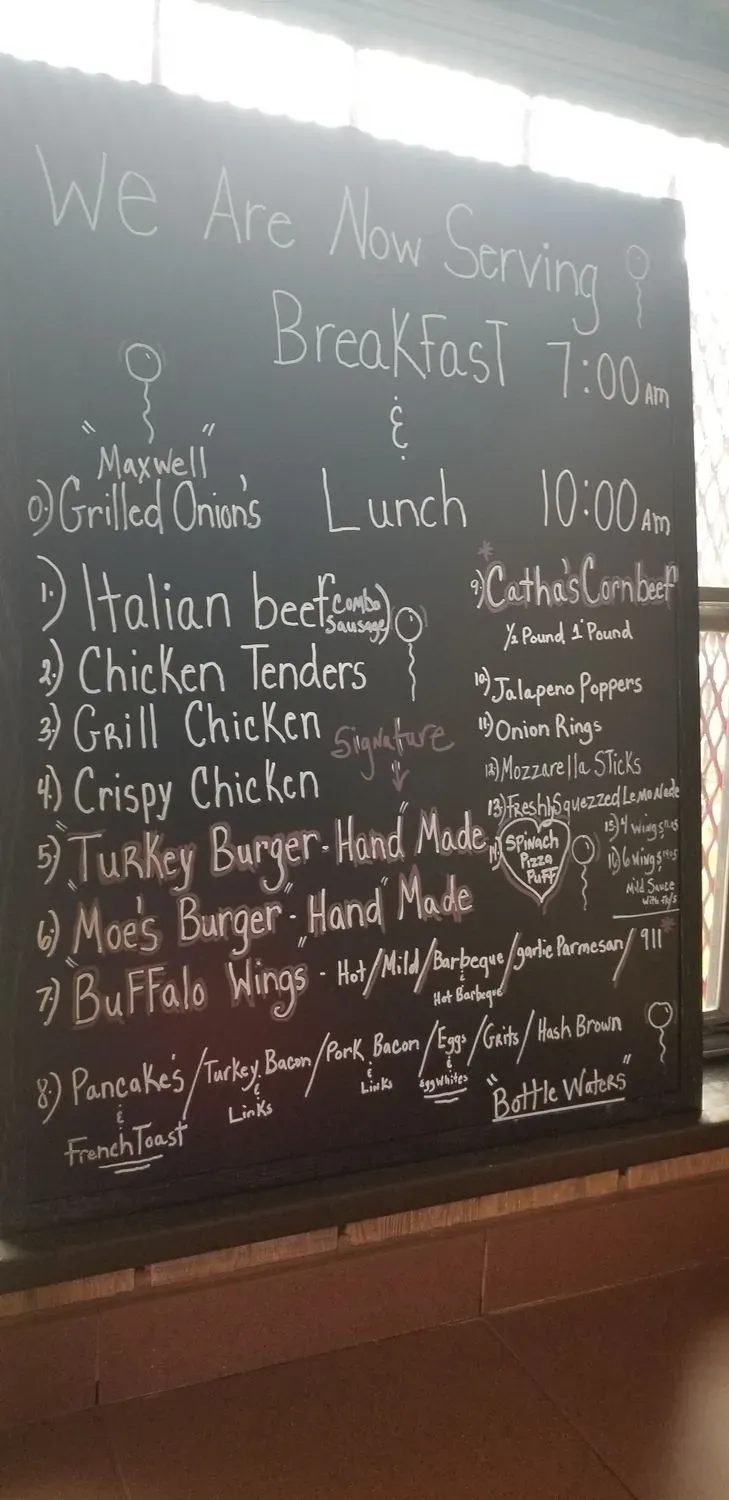 We Are Now Serving
Breakfast 7:00 Am
&
"Maxwell"
0) Grilled Onion's
Lunch 10:00 Am
1.) Italian beef (Combo Sausage)
2.) Chicken Tenders
3.) Grill Chicken
4.) Crispy Chicken
Signature
5) "Turkey Burger - Hand" Made
6.) "Moe's Burger" - "Hand" Made
7.) "Buffalo Wings" - Hot/Mild/Barbeque/garlic Parmesan/911*
& Hot Barbeque
8.) Pancake's/Turkey Bacon/Pork Bacon/Eggs/Grits/Hash Brown
& French Toast
& Links
& Links
& Egg whites
"Bottle Waters"
*
9.) Catha's Cornbeef
1/2 Pound, 1 Pound
10.) Jalapeno Poppers
11.) Onion Rings
12) Mozzarella Sticks
13) Fresh Squezzed Lemonade
14.) Spinach
Pizza
Puff
15) 4 wings
16) 6 wings
Mild Sauce